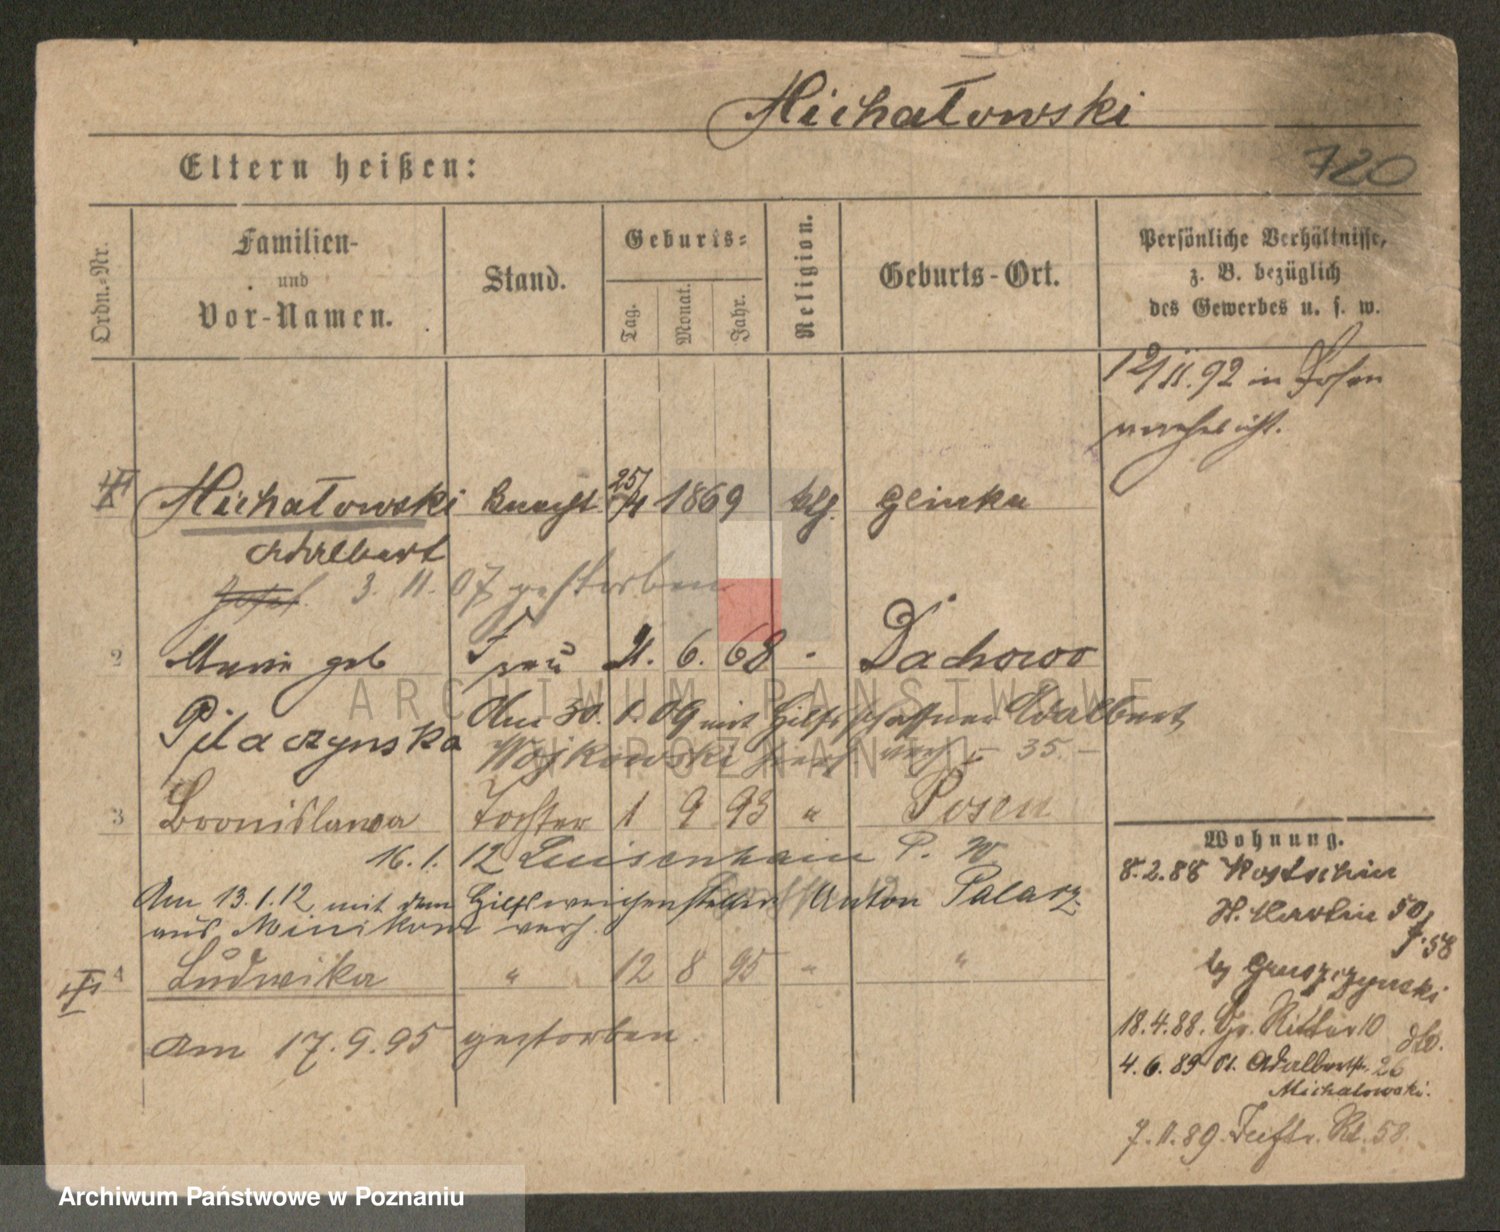 Michałowski
720
Eltern heißen:
Ordn.-Nr.
Familien-
und
Vor-Namen.
Stand.
Geburts-
Tag.
Monat.
Jahr.
Religion.
Geburts-Ort.
Persönliche Verhältnisse,
z. B. bezüglich
des Gewerbes u. s. w.
12/11.92 in Posen
verehelicht.
Michałowski Knecht 25/4 1869 kth. Glinka
Adalbert
Josef. 3. 11. 07 gestorben
2 Marie geb Frau 21. 6. 68 - Dachowo
Pilaczynska Am 30. 1. 09 mit Hilfsschaffner Adalbert
Wojkowski hier verh. - 35. -
3 Bronislawa Tochter 1 9 93 " Posen
16. 1. 12 Luisenhain P. W
Am 13. 1. 12 mit dem Hilfsweichensteller Anton Palacz
aus Minikowo verh.
4 Ludwika " 12 8 95 " "
Am 17. 9. 95 gestorben.
Wohnung.
8. 2. 88 Kostschin
St. Martin 50/
f. 58
by Gruszczynski
18. 4. 88. Gr. Ritter 10 dto.
4. 6. 89 St. Adalbertstr. 26
Michalowski.
7. 11. 89. 58.
ARCHIWUM PAŃSTWOWE
W POZNANIU
Archiwum Państwowe w Poznaniu